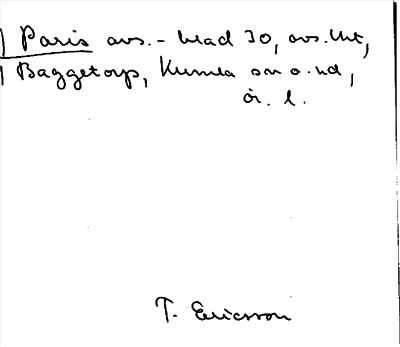 Paris avs. - blad 30, avs. Unt,
Baggetorp, Kumla sn o. hd,
ör. l.
T. Ericsson